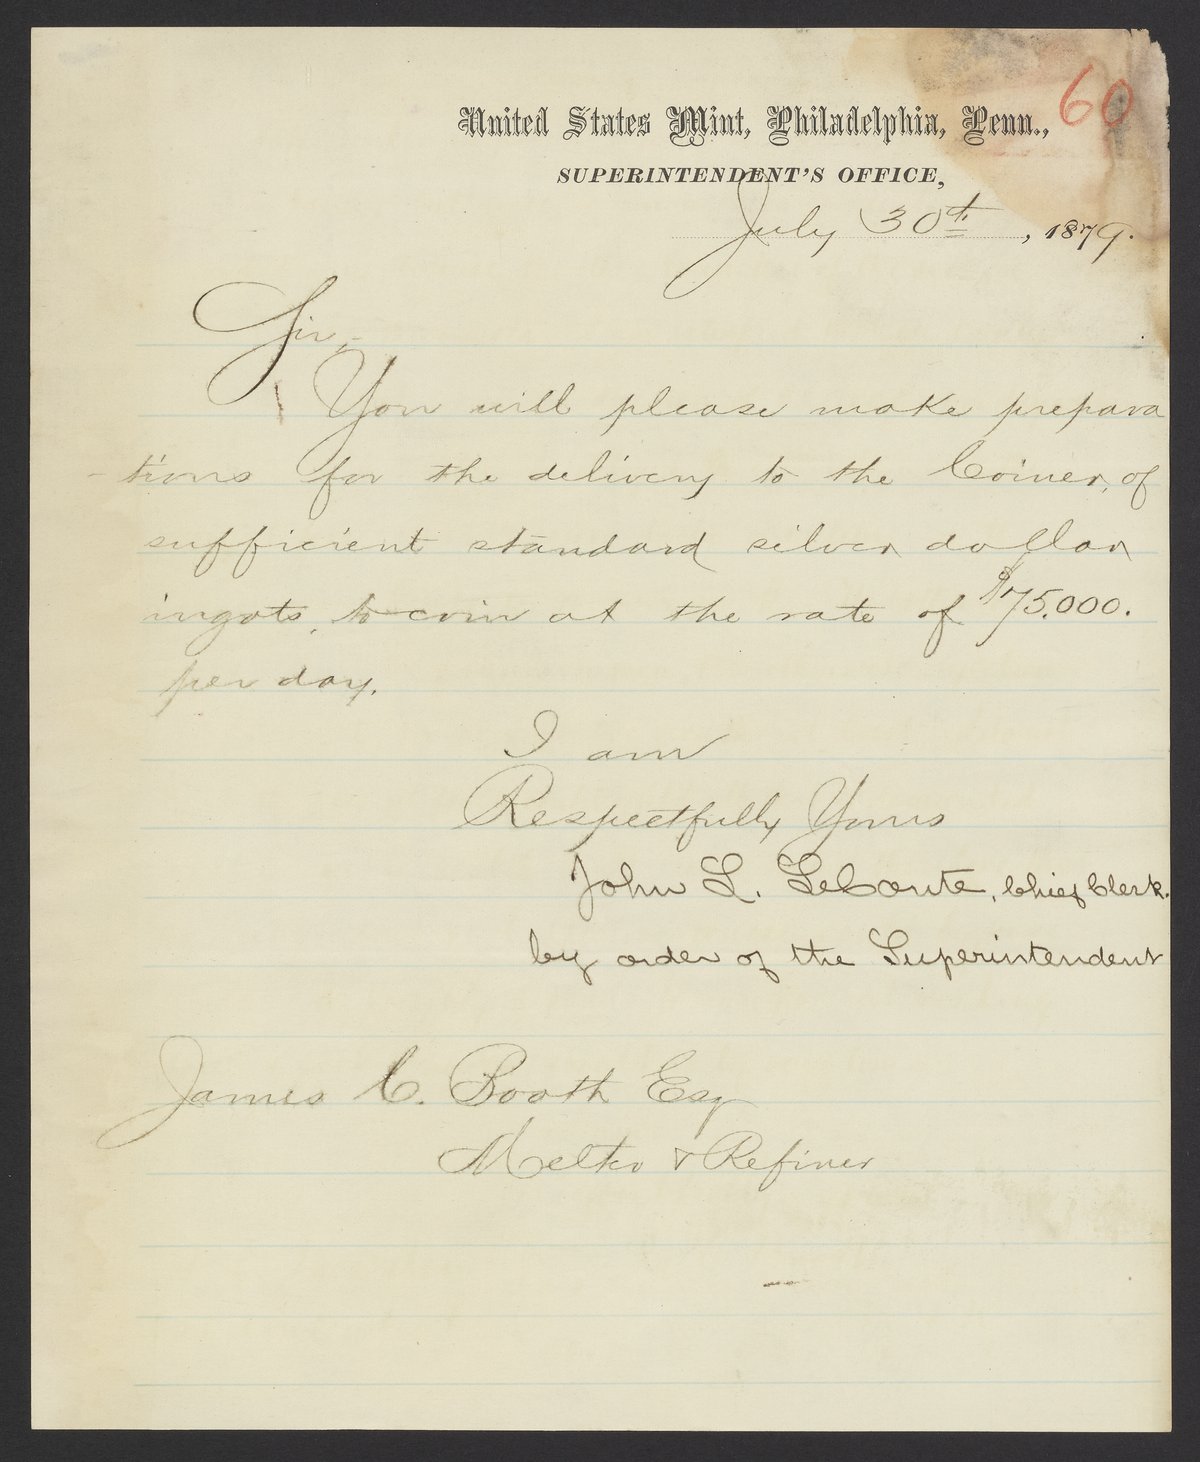 60
United States Mint, Philadelphia, Penn.,
SUPERINTENDENT'S OFFICE,
July 30th, 1879.
Sir,
You will please make prepara
-tions for the delivery to the Coiner, of
sufficient standard silver dollar
ingots, to coin at the rate of $75.000.
per day.
I am
Respectfully Yours
John L. LeConte, Chief Clerk.
by order of the Superintendent
James C. Booth Esq
Melter & Refiner